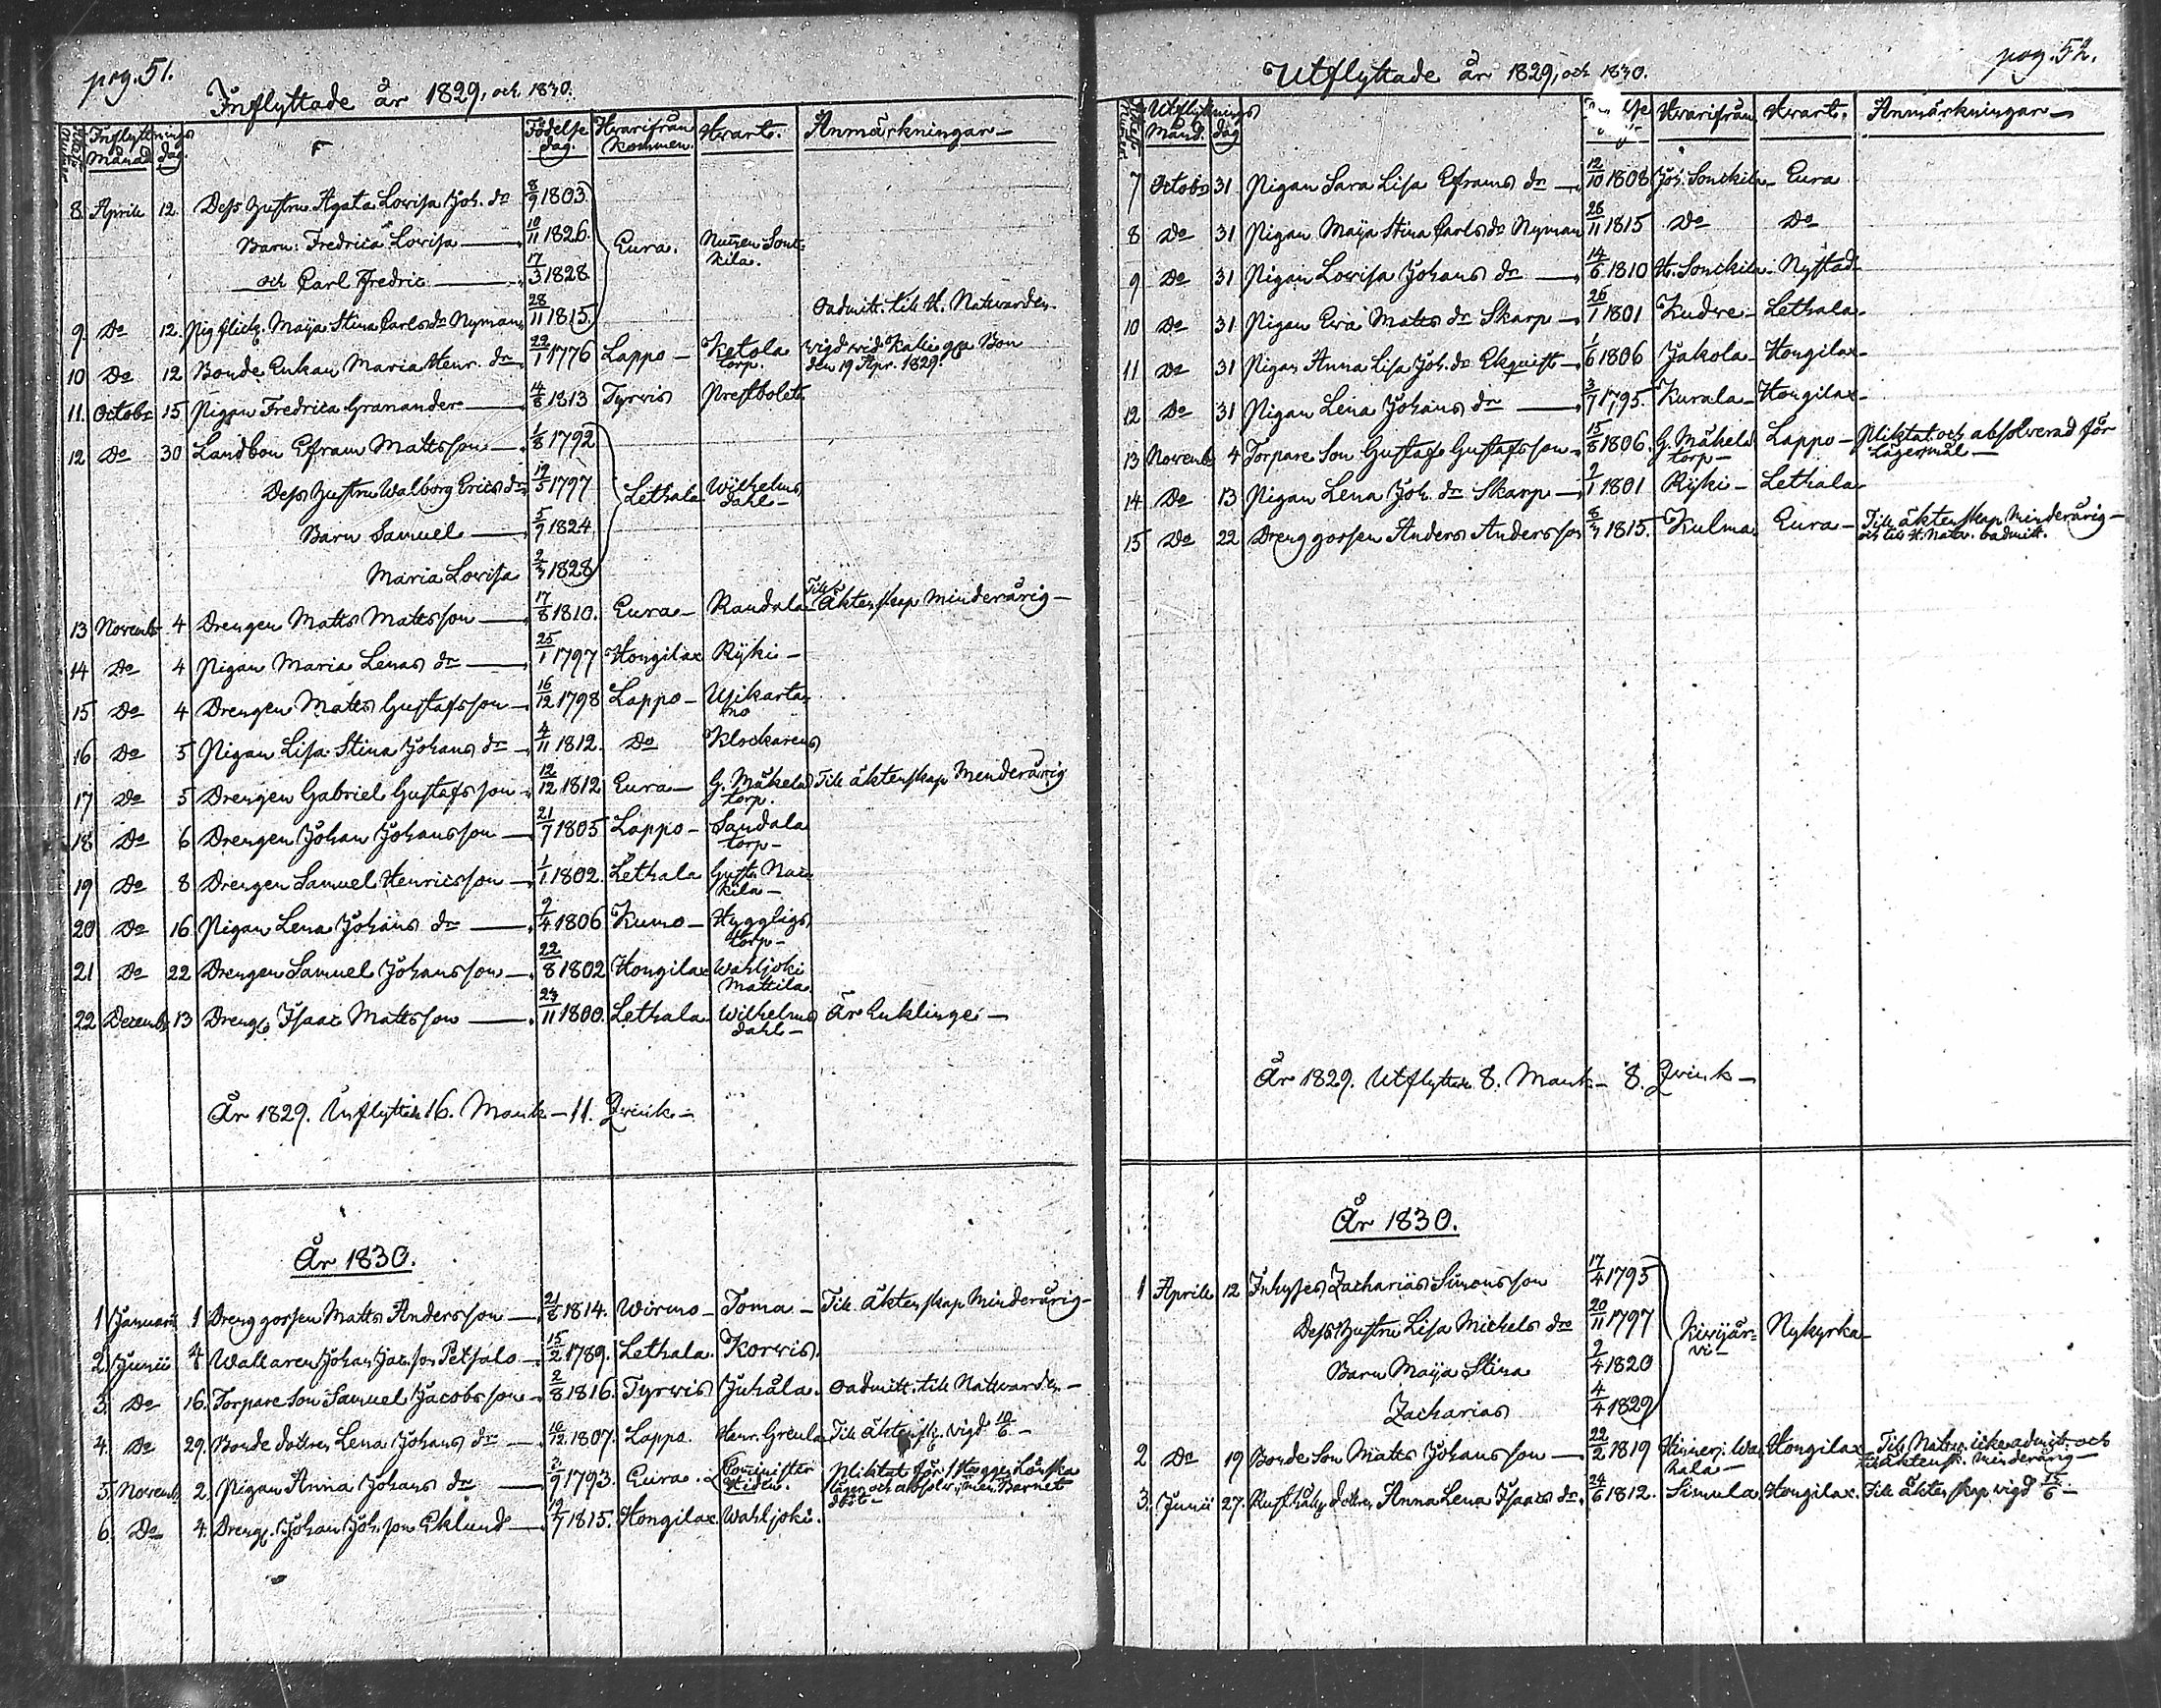 pag. 51.
Inflyttade år 1829, och 1830.
Inflyttnings Månad dag Födelse dag. Hvarifrån kommen. Hvart. Anmärkningar
8. Aprill 12. Dess Hustru Agata Lovisa Joh. dr 8/9 1803
Barn: Fredrica Lovisa 10/11 1826. Eura.
och Carl Fredric 17/3 1828
9. Do 12. Maija Stina Carls dr Nyman 28/11 1815. oadmitt. till H. Nattvarden
10 Do 12 Bonde Enkan Maria Henr. dr 22/1 1776 Lappo Ketola torp. vigd wid
den 19 Apr. 1829.
11. Octobr 15 Pigan Fredrica Granander 4/8 1813 Tyrvis Prestbolet
12 Do 30 Landbon Efraim Mattsson 1/8 1792
Dess Hustru Walborg Erics dr 19/5 1797 Lethala Wilhelms dahl
Barn Samuel 5/9 1824
Maria Lovisa 2/3 1828
13 Novembr 4 Drengen Matts Mattsson 17/8 1810. Eura Randala Till Äktenskap minderårig
14 Do 4 Pigan Maria Lenas dr 25/1 1797 Hongilax Rijki
15 Do 4 Drengen Matts Gustafsson 16/12 1798 Lappo Uikarta-
mo
16 Do 5 Pigan Lisa Stina Johans dr 4/11 1812. Do Klockarens
17 Do 5 Drengen Gabriel Gustafsson 12/12 1812 Eura G. Mäkelä torp. Till äktenskap Menderårig
18 Do 6 Drengen Johan Johansson 21/7 1805 Lappo Sandala
torp
19 Do 8 Drengen Samuel Henricsson 1/1 1802. Lethala
20 Do 16 Pigan Lena Johans dr 9/4 1806 Kumo Hyggligs
torp
21 Do 22 Drengen Samuel Johansson 22/8 1802 Hongilax Wahljoki
Mattila
22 Decembr 13 Dreng. Isaac Mattsson 23/11 1800. Lethala Wilhelms dahl Är Enklinge
År 1829. Inflyttade 16. Mank 11. Qvink
År 1830.
1 Januarii 1 Dreng gossen Matts Andersson 21/8 1814. Wirmo Toma Till äktenskap Minderårig
2. Junii 8 Wallaren Johan Jac. son Petsalo 15/2 1789. Lethala. Korwis
3. Do 16. Torpare Son Samuel Jacobsson 2/8 1816. Tyrvis Juhåla. oadmitt. till Nattvarden
4. Do 29. Bonde dottren Lena Johans dr 10/12 1807. Lappo. Henr. Greula Till äktensk. vigd 10/6
5. Novembr 2. Pigan Anna Johans dr 2/9 1793. Eura. Comminister Pliktat för
och absolv. men Barnet
dödt
6. Do 4. Dreng. Johan Joh. son Eklund 19/7 1815. Hongilax. Wahljoki.
pag. 52.
Utflyttade år 1829, och 1830.
Utflyttnings Månd. dag Hvarifrån Hvart. Anmärkningar
7 Octobr 31 Pigan Sara Lisa Efraims dr 12/10 1808 Eura
8 Do 31 Pigan Maija Stina Carls dr Nyman 28/11 1815 Do Do
9 Do 31 Pigan Lovisa Johans dr 14/6 1810 Nystad
10 Do 31 Pigan Eva Matts dr Skarp 26/1 1801 Kudre Lethala
11 Do 31 Pigan Anna Lisa Joh. dr Ekquist 1/6 1806 Jakola Hongilax
12 Do 31 Pigan Lena Johans dr 3/7 1795. Kurala Hongilax
13 Novemb 4 Torpare Son Gustaf Gustafsson 15/8 1806. G. Mäkelä torp Lappo Pliktat och absolverad för
Lägersmål
14 Do 13 Pigan Lena Joh. dr Skarp 2/1 1801 Rijki Lethala
15 Do 22 Dreng gossen Anders Andersson 8/3 1815. Kulma Eura Till äktenskap Minderårig
och till H. Nattv. oadmitt.
År 1829. Utflyttade 8. Mank 8. Qvink
År 1830.
1 Aprill 12 Inhyses Zacharias Simonsson 17/4 1795
Dess Hustru Lisa Michels dr 20/11 1797 Nykyrka
Barn Maija Stina 2/4 1820
Zacharias 4/4 1829
2 Do 19 Bonde Son Matts Johansson 22/2 1819 Hongilax Till Nattv. icke admitt. och
till äktensk. minderårig
3. Junii 27. Rusthålls dottren Anna Lena Isaacs dr. 24/6 1812. Simula Hongilax. Till äktenskap vigd 15/6